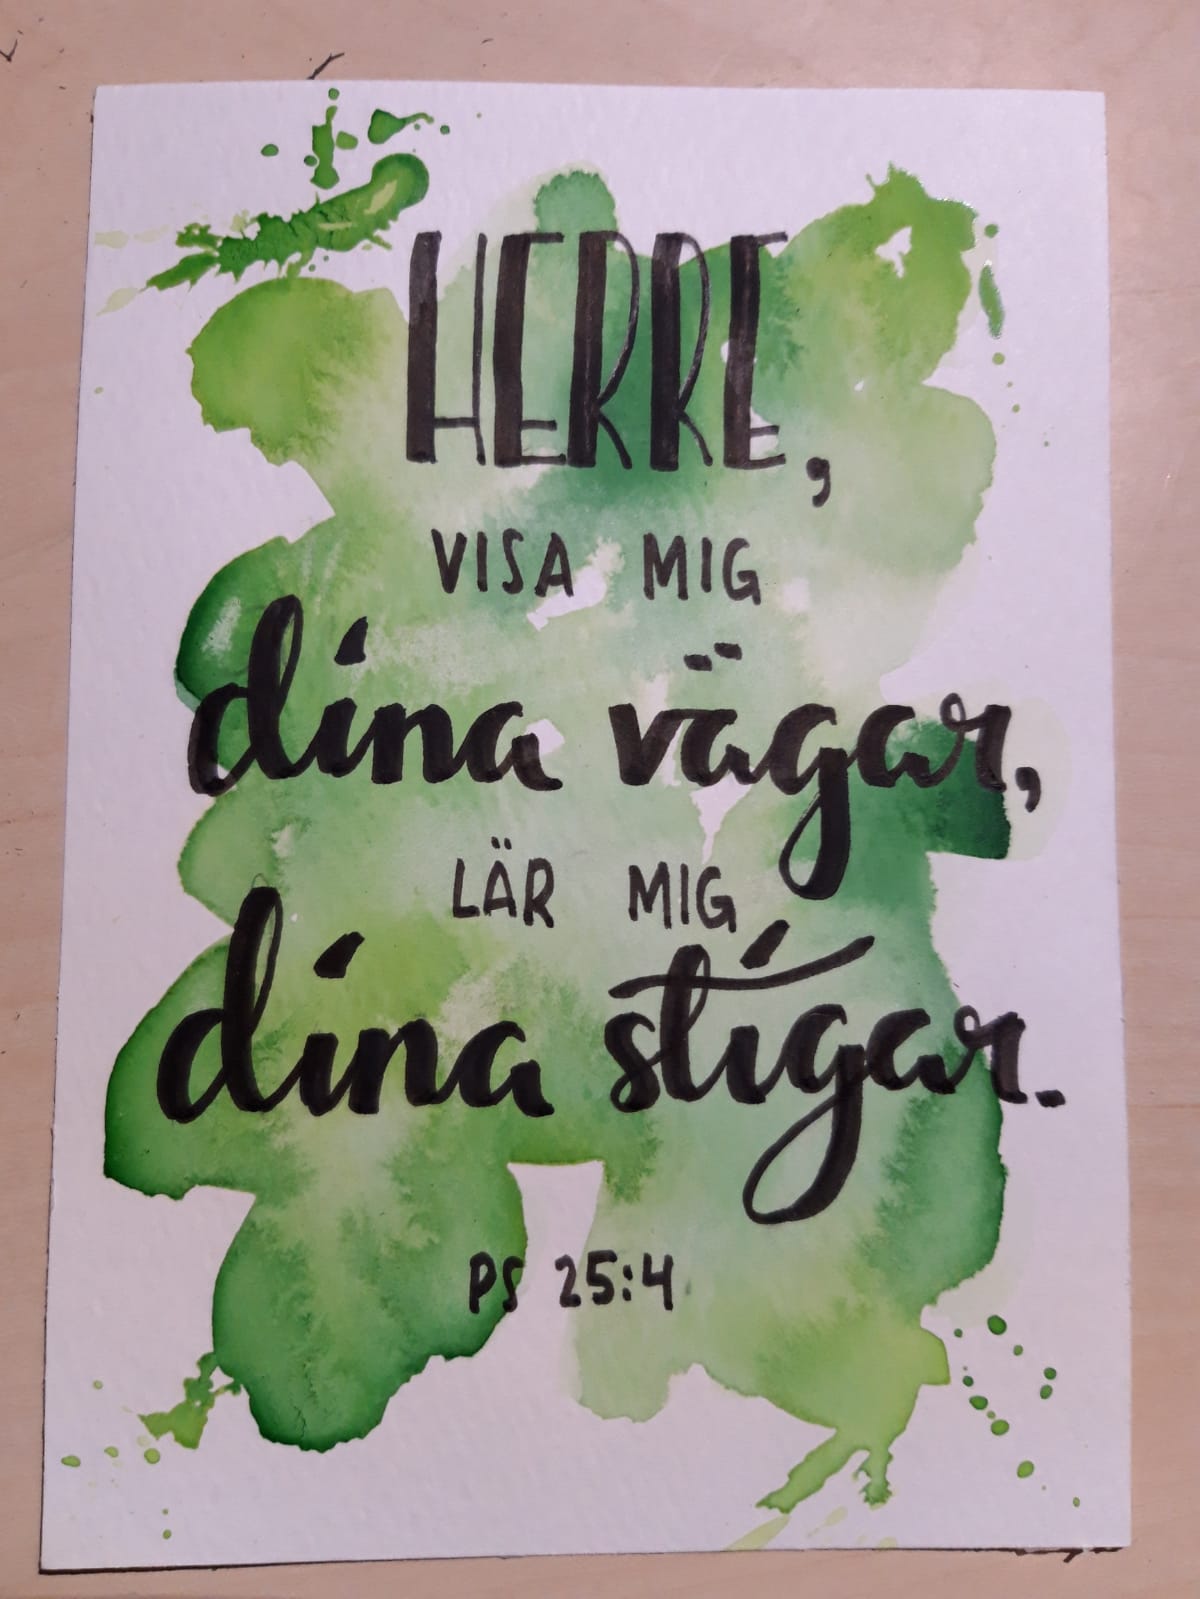 HERRE,
VISA MIG
dina vägar,
LÄR MIG
dina stigar.
PS 25:4